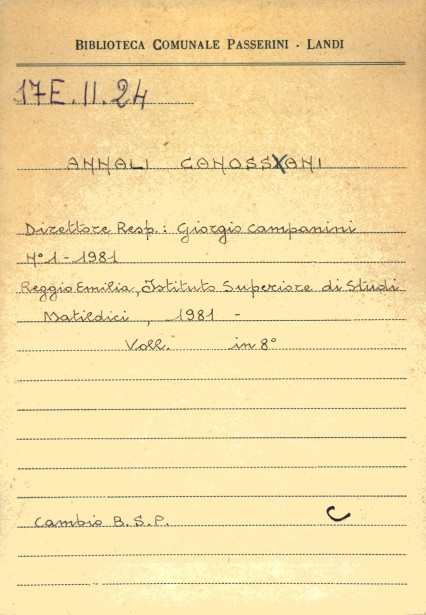 BIBLIOTECA COMUNALE PASSERINI - LANDI
17E.II.24
ANNALI CANOSSXANI
Direttore Resp.: Giorgio Campanini
N°1-1981
Reggio Emilia, Istituto Superiore di Studi
Matildici, 1981 -
Voll. in 8°
Cambio B.S.P. C